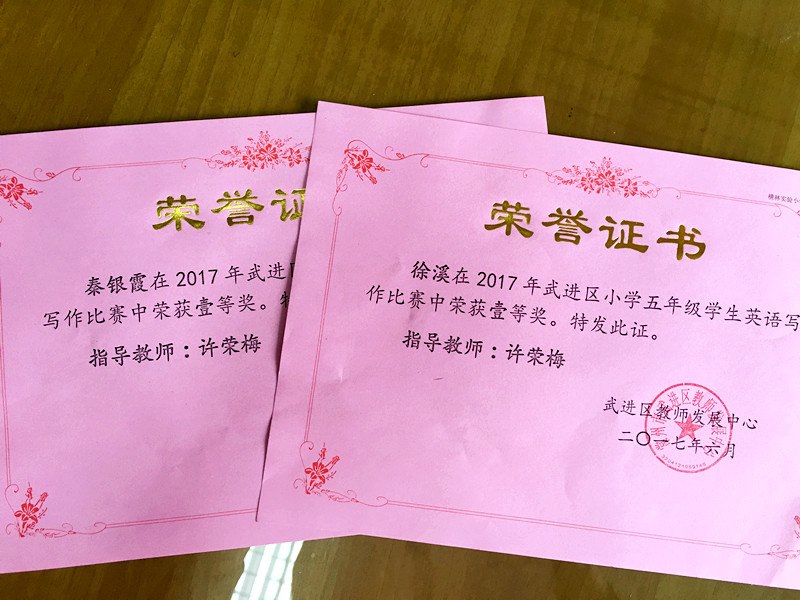 荣誉证
秦银霞在 2017 年武进区
写作比赛中荣获壹等奖。特
指导教师：许荣梅
横林实验小
荣誉证书
徐溪在 2017 年武进区小学五年级学生英语写
作比赛中荣获壹等奖。特发此证。
指导教师：许荣梅
武进区教师发展中心
二〇一七年六月